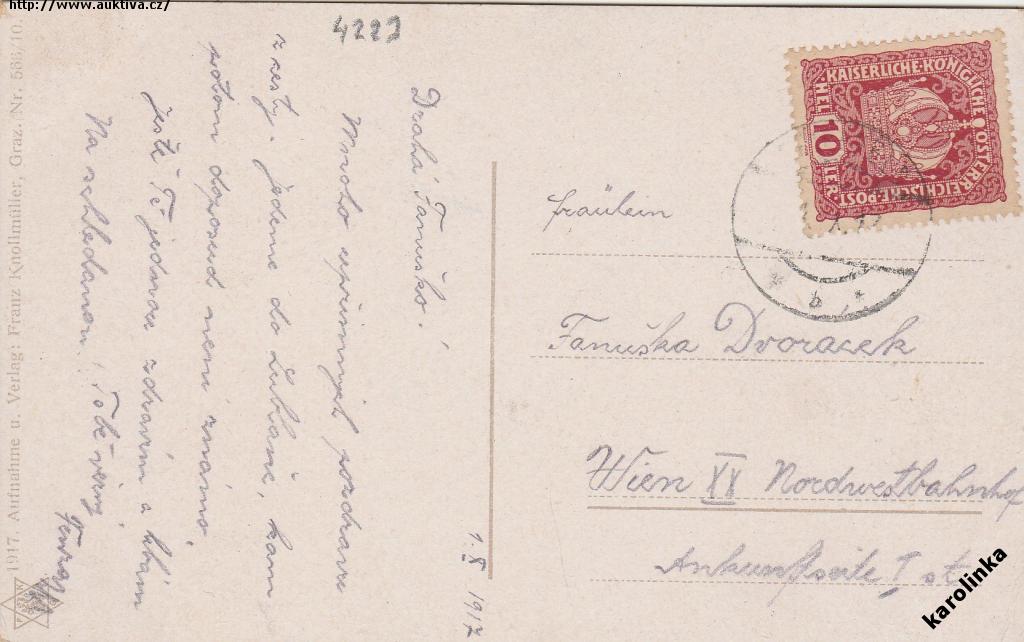 http://www.auktiva.cz/
4223
Drahá Fanuško!
Mnoho upřimných pozdravů
z cesty. jedeme do Lublaně, kam
potom doposud není známo.
ještě Tě jednou zdravím a líbám
Na schledanou! Tobě věrný
1. X 1917
1917. Aufnahme u. Verlag: Franz Knollmüller, Graz. Nr. 583/10.
KAISERLICHE KÖNIGLICHE ÖSTERREICHISCHE POST
10
HELLER
b
fräulein
Fanuška Dvoracek
Wien XX Nordwestbahnhof
Ankunftseite I st
karolinka